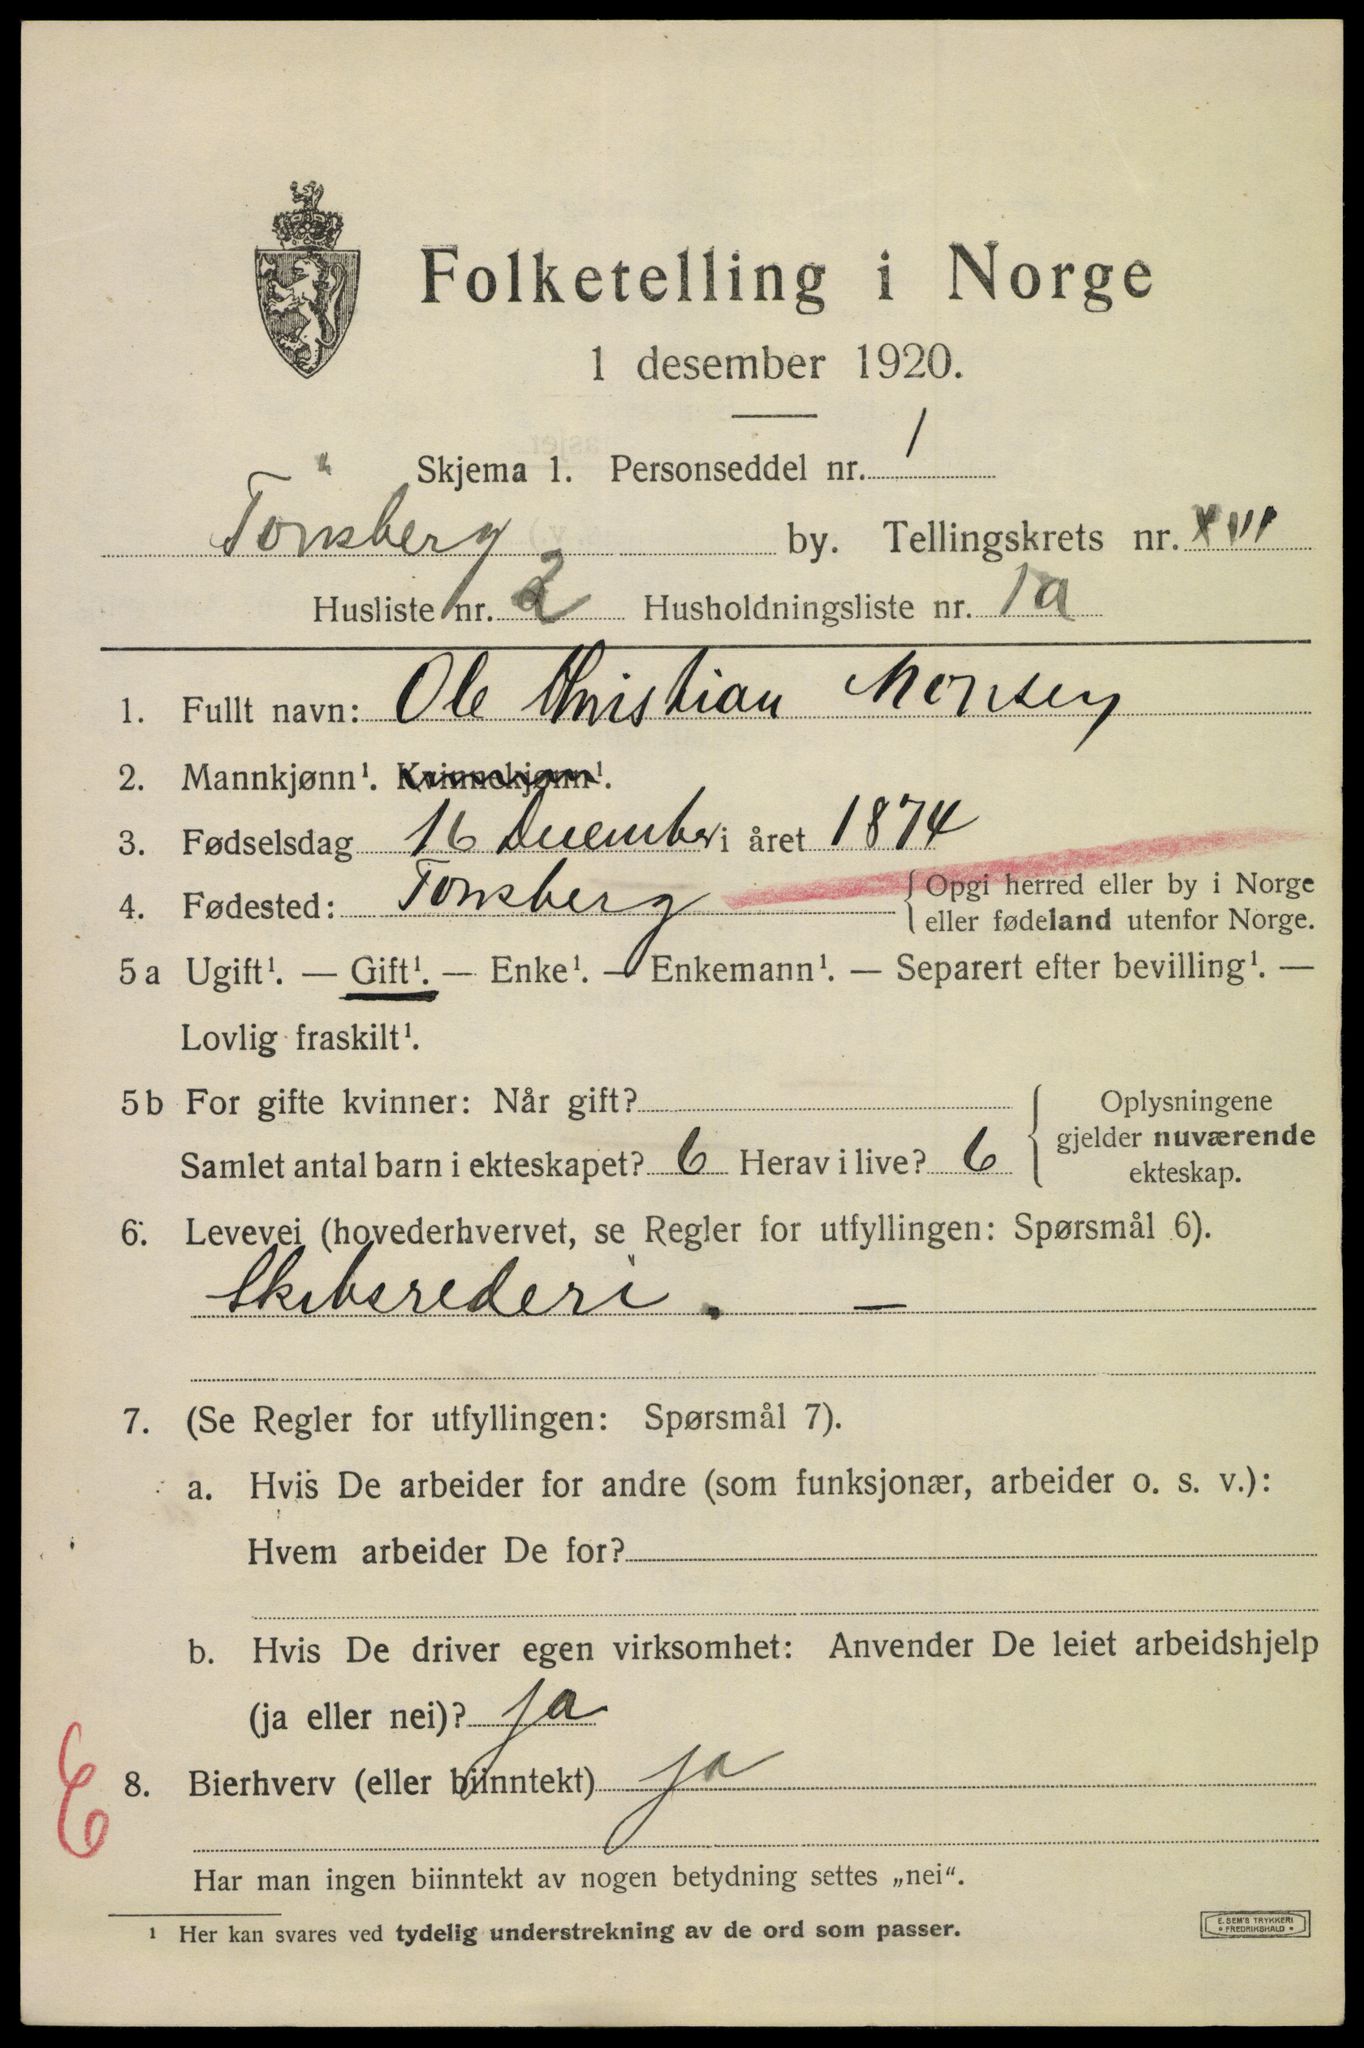 Folketelling i Norge
1 desember 1920.
Skjema 1. Personseddel nr. 1
Tönsberg by. Tellingskrets nr. XIII
Husliste nr. 2 Husholdningsliste nr. 1a
1. Fullt navn: Ole Christian Monsen
2. Mannkjønn¹. Kvinnekjønn¹.
3. Fødselsdag 16 December i året 1874
4. Fødested: Tonsberg { Opgi herred eller by i Norge
eller fødeland utenfor Norge.
5 a Ugift¹. — Gift¹. — Enke¹. — Enkemann¹. — Separert efter bevilling¹. —
Lovlig fraskilt¹.
5 b For gifte kvinner: Når gift? { Oplysningene
gjelder nuværende
Samlet antal barn i ekteskapet? 6 Herav i live? 6
ekteskap.
6. Levevei (hovederhvervet, se Regler for utfyllingen: Spørsmål 6).
Skibsrederi. —
7. (Se Regler for utfyllingen: Spørsmål 7).
a. Hvis De arbeider for andre (som funksjonær, arbeider o. s. v.):
Hvem arbeider De for?
b. Hvis De driver egen virksomhet: Anvender De leiet arbeidshjelp
(ja eller nei)? ja
E
8. Bierhverv (eller biinntekt) ja
Har man ingen biinntekt av nogen betydning settes „nei“.
¹ Her kan svares ved tydelig understrekning av de ord som passer.
E. SEM'S TRYKKERI
* FREDRIKSHALD *